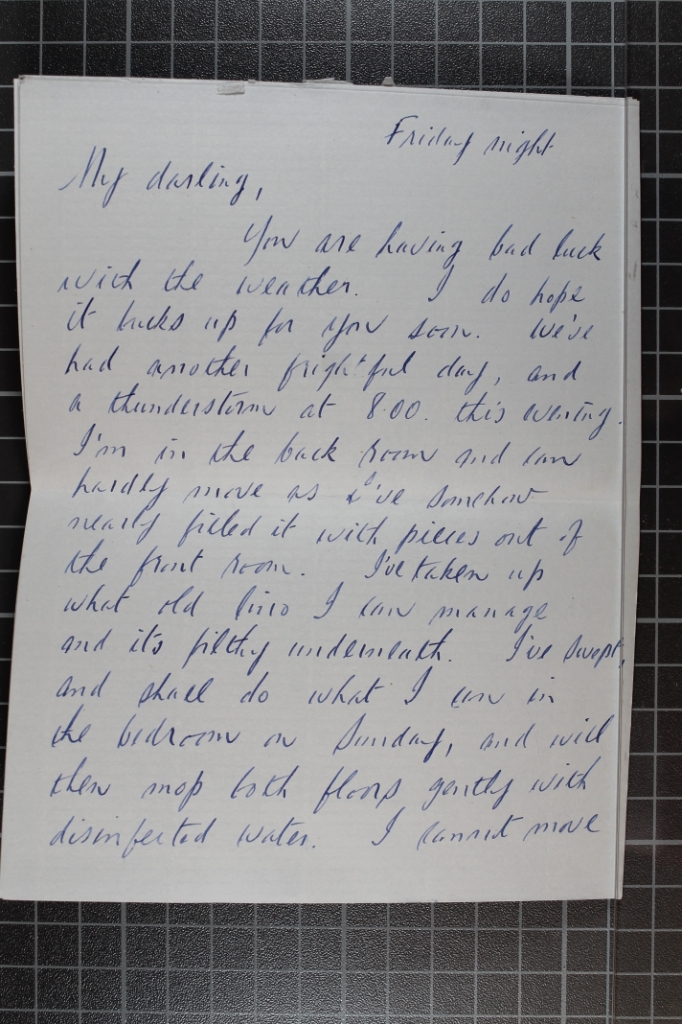 Friday night
My darling,
You are having bad luck
with the weather. I do hope
it bucks up for you soon. We've
had another frightful day, and
a thunderstorm at 8.00. this evening.
I'm in the back room and can
hardly move as I've somehow
nearly filled it with pieces out of
the front room. I've taken up
what old lino I can manage
and it's filthy underneath. I've swept,
and shall do what I can in
the bedroom on Sunday, and will
then mop both floors gently with
disinfected water. I cannot move